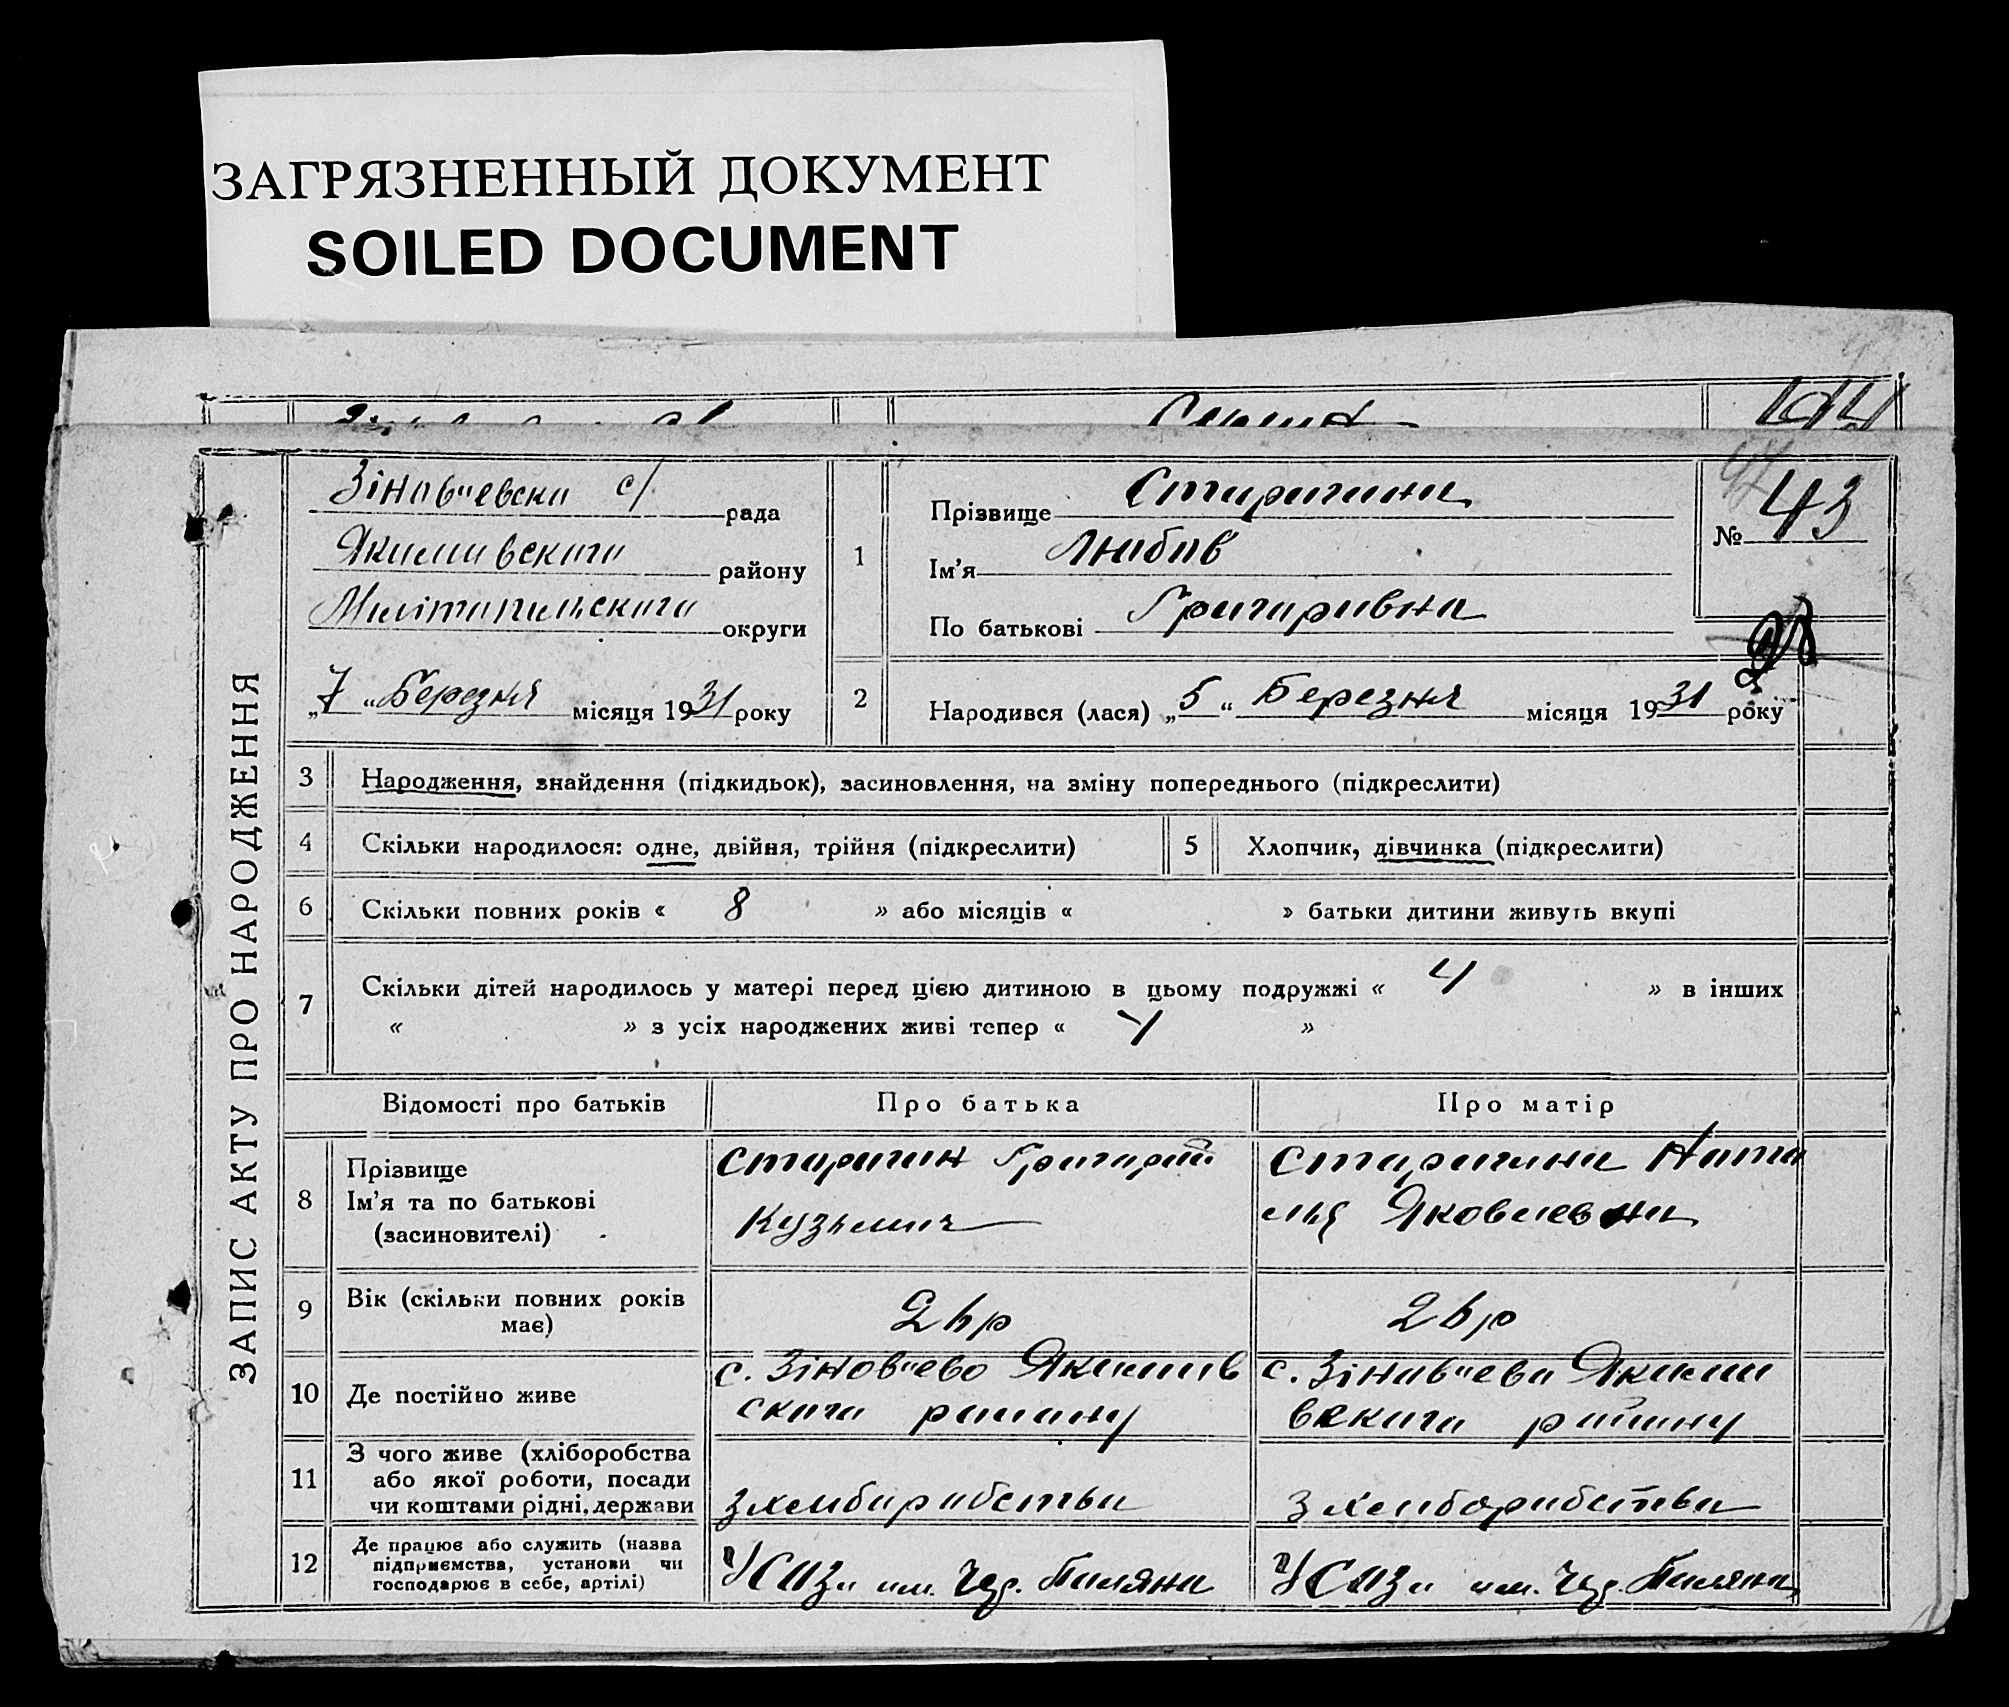 ЗАГРЯЗНЕННЫЙ ДОКУМЕНТ
SOILED DOCUMENT
ЗАПИС АКТУ ПРО НАРОДЖЕННЯ
Зіновʼєвска с/ рада
Якимівского району
Мелітопільского округи
„7“ Березня місяця 1931 року
1
Прізвище Старигина
Імʼя Любов
По батькові Григоривна
№ 43
2
Народився (лася) „5“ Березня місяця 1931 року
3 Народження, знайдення (підкидьок), засиновлення, на зміну попереднього (підкреслити)
4 Скільки народилося: одне, двійня, трійня (підкреслити) 5 Хлопчик, дівчинка (підкреслити)
6 Скільки повних років « 8 » або місяців « » батьки дитини живуть вкупі
7 Скільки дітей народилось у матері перед цією дитиною в цьому подружжі « 4 » в інших
« » з усіх народжених живі тепер « 4 »
Відомості про батьків Про батька Про матір
8 Прізвище
Імʼя та по батькові
(засиновителі)
Старигин Григорий
Кузьмич
Старигина Ната
лья Яковлевна
9 Вік (скільки повних років
має)
10 Де постійно живе
с. Зіновʼево Якимів
ского району
с. Зіновʼево Якими
вского району
11 З чого живе (хліборобства
або якої роботи, посади
чи коштами рідні, держави
З хлиборобства
З хлиборобства
12 Де працює або служить (назва
підприємства, установи чи
господарює в себе, артілі)
У СОЗи им. Чер. Поляна
У СОЗи им. Чер. Поляна